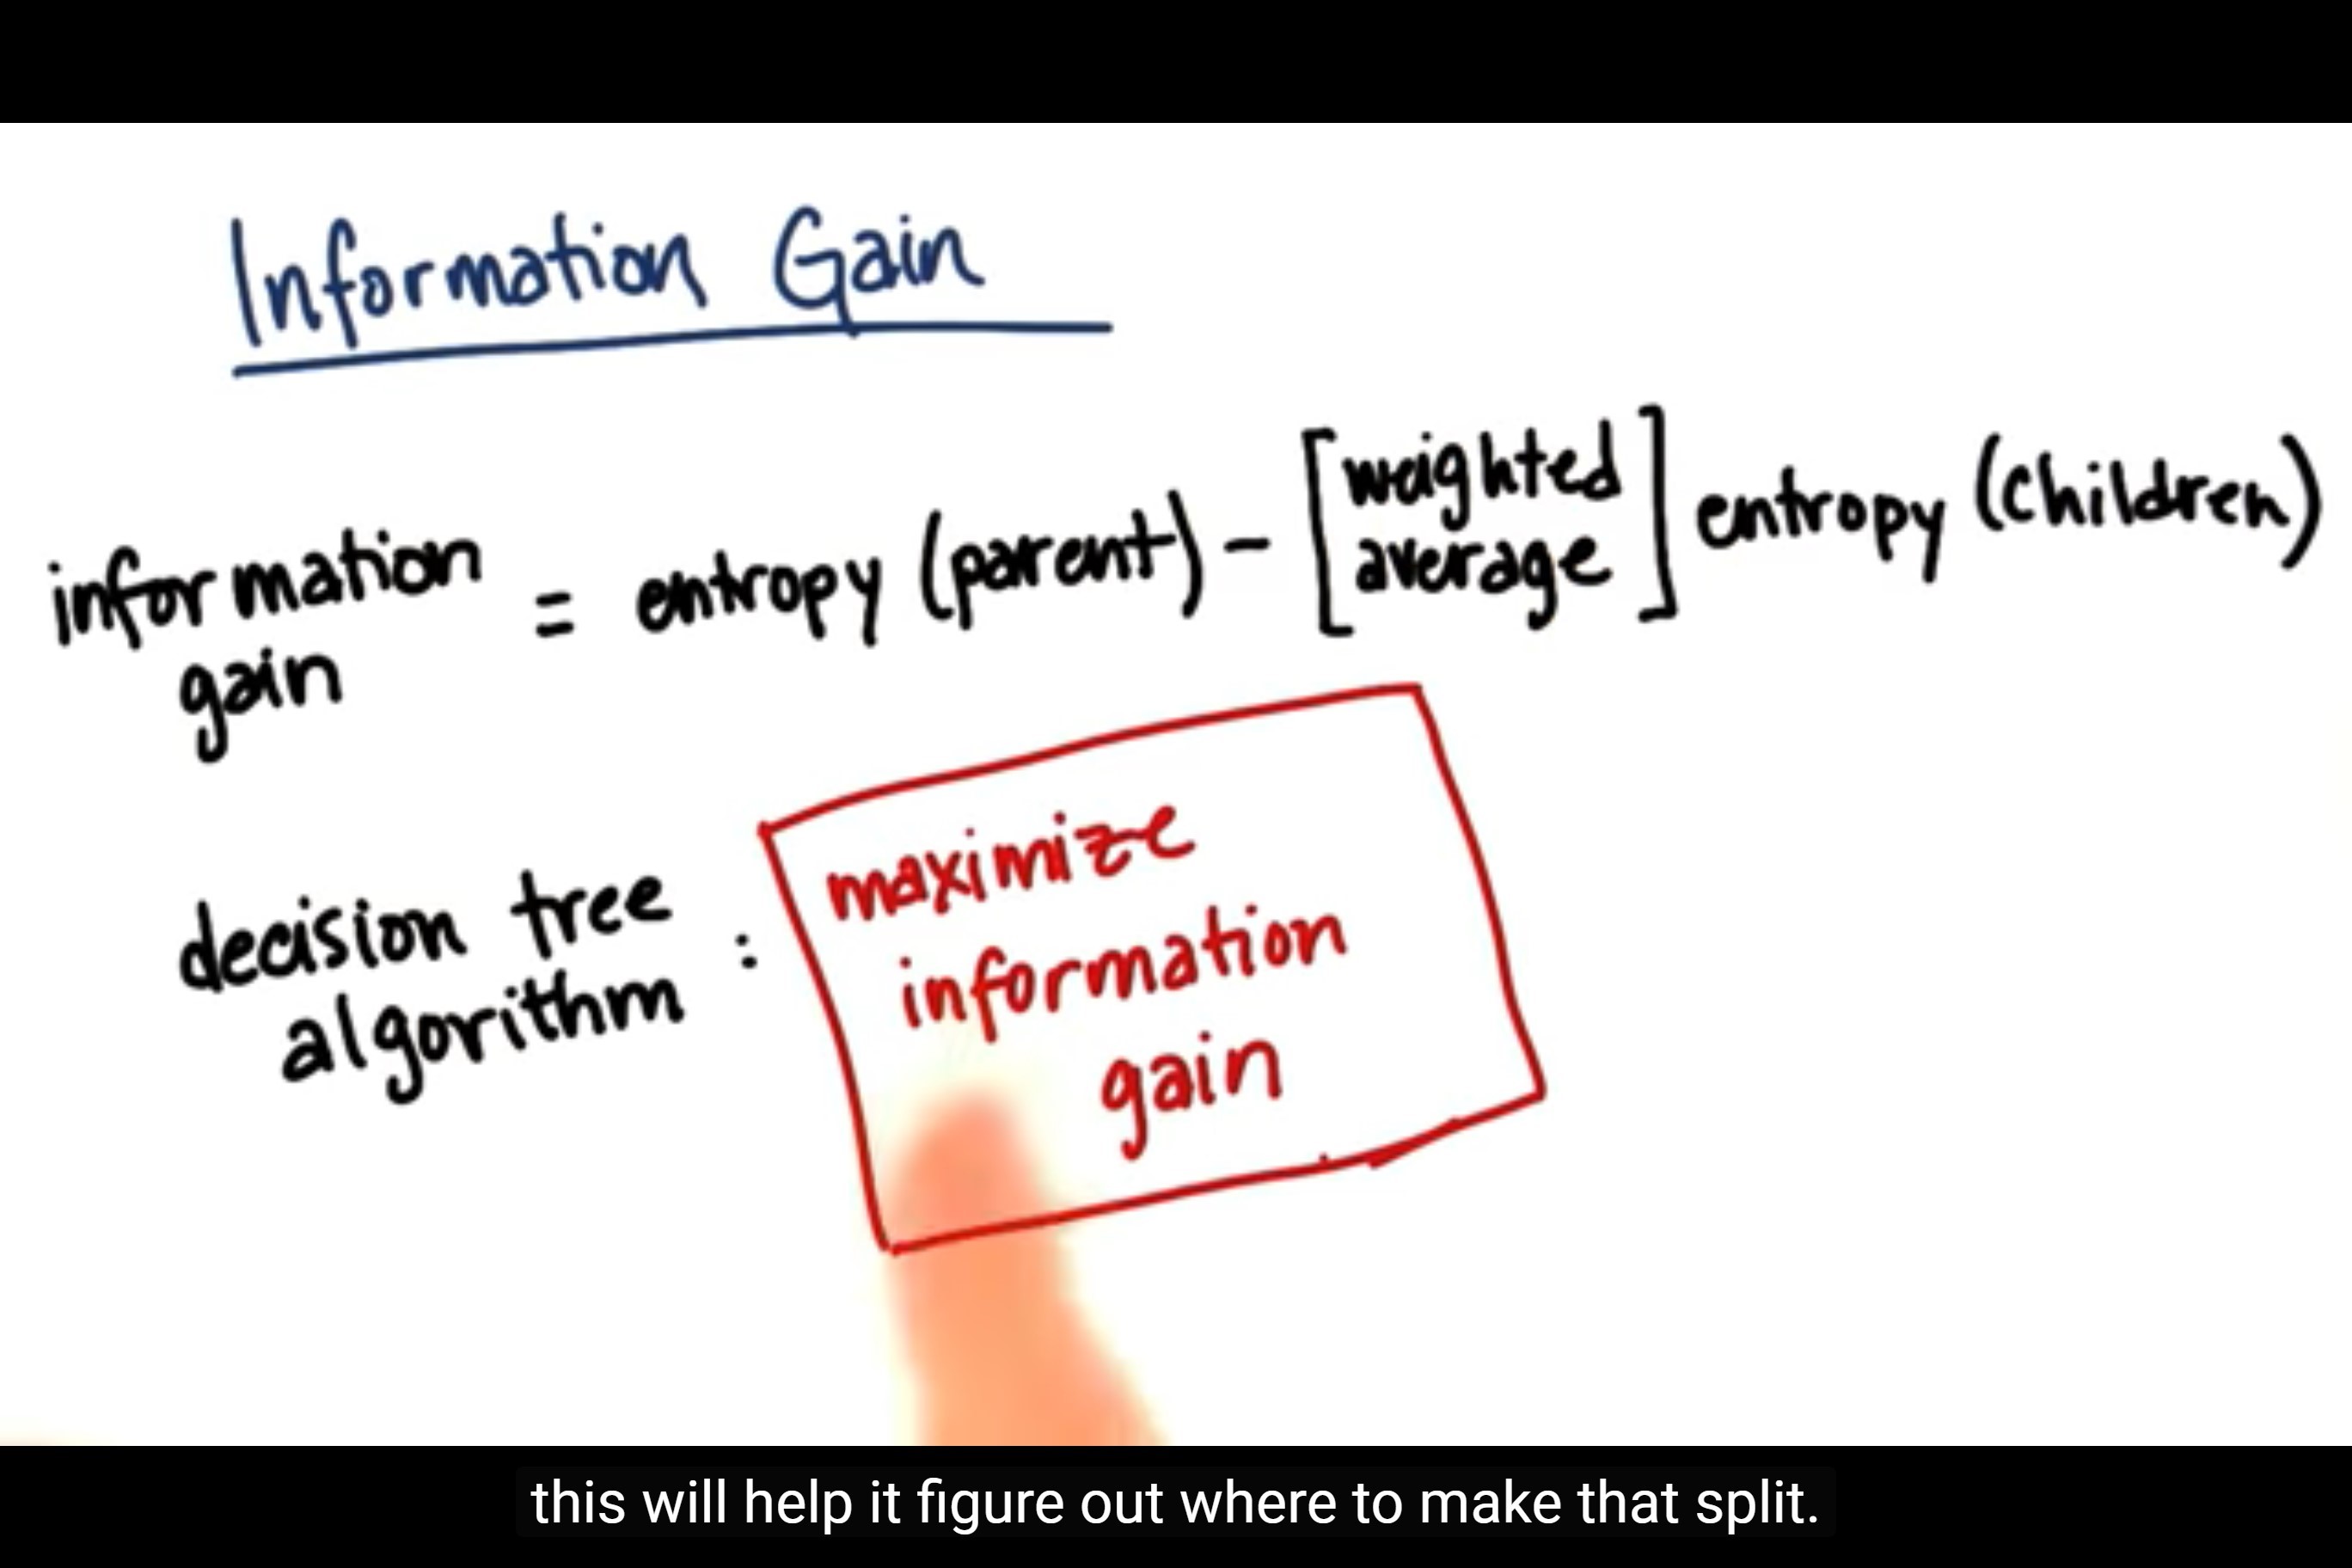 Information Gain
information gain = entropy (parent) - [weighted average] entropy (children)
decision tree algorithm : maximize information gain
this will help it figure out where to make that split.